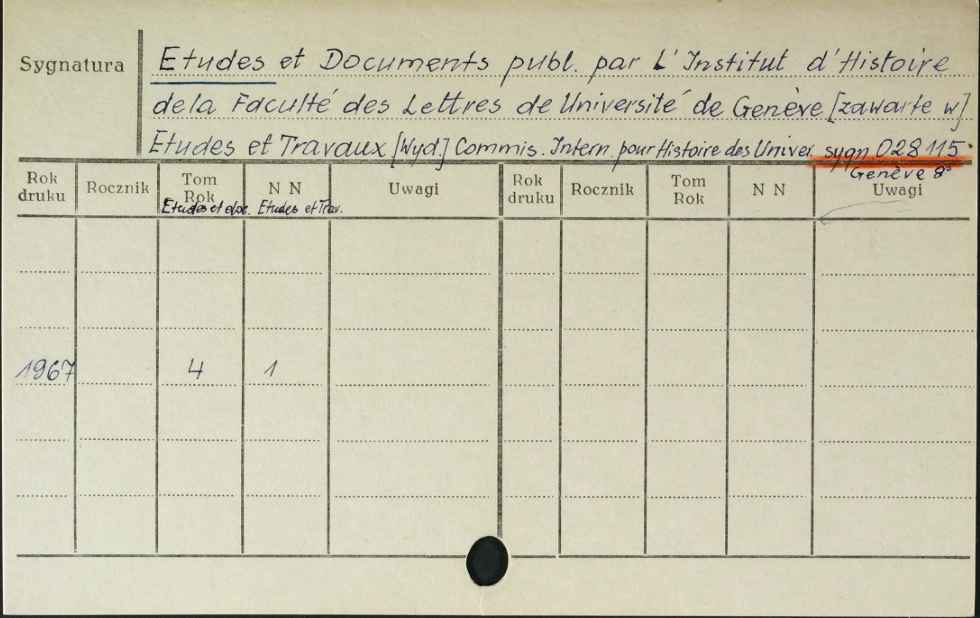 Sygnatura
Etudes et Documents publ. par L'Institut d'Histoire
de la Faculté des Lettres de Université de Genève [zawarte w]
Etudes et Travaux [Wyd.] Commis. Intern. pour Histoire des Univer. sygn. 028115
Genève 8°
Rok druku Rocznik Tom Rok N N Uwagi Rok druku Rocznik Tom Rok N N Uwagi
Etudes et doc. Etudes et Trav.
1967 4 1